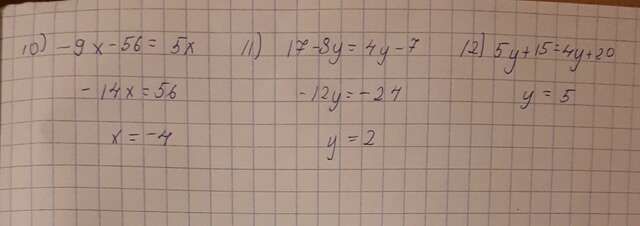 10) -9x-56= 5x 11) 17-8y=4y-7 12) 5y+15=4y+20
-14x=56 -12y=-24 y=5
x=-4 y=2